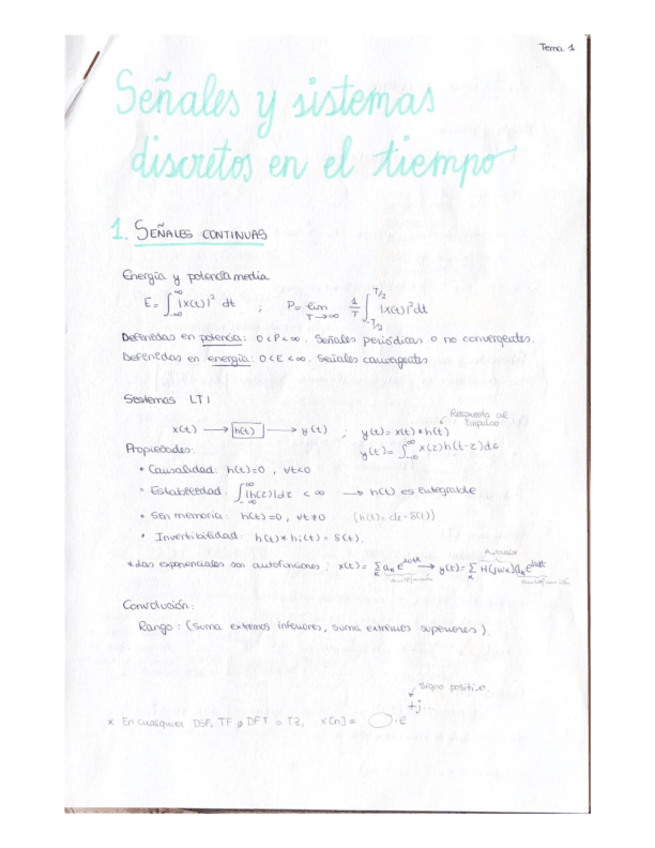 Tema 1
Señales y sistemas
discretos en el tiempo
1. SEÑALES CONTINUAS
Energía y potencia media
E = ∫_{-∞}^{∞} |x(t)|² dt ; P = lim_{T→∞} 1/T ∫_{-T/2}^{T/2} |x(t)|² dt
Definidas en potencia: 0<P<∞. Señales periódicas o no convergentes.
Definidas en energía: 0<E<∞. Señales convergentes
Sistemas LTI
Respuesta al impulso
x(t) → h(t) → y(t) ; y(t) = x(t) * h(t)
y(t) = ∫_{-∞}^{∞} x(τ)h(t-τ)dτ
Propiedades:
• Causalidad: h(t)=0, ∀t<0
• Estabilidad: ∫_{-∞}^{∞} |h(τ)|dτ < ∞ → h(t) es integrable
• Sin memoria: h(t)=0, ∀t≠0 (h(t) = cte·δ(t))
• Invertibilidad: h(t) * hi(t) = δ(t).
Autovalor
* Las exponenciales son autofunciones: x(t) = Σ_k a_k e → y(t) = Σ_k H(jωk) a_k e
autofunción autofunción
Convolución:
Rango: (suma extremos inferiores, suma extremos superiores).
Signo positivo.
+j...
* En cualquier DSF, TF o DFT o TZ, x[n] = ◯·e